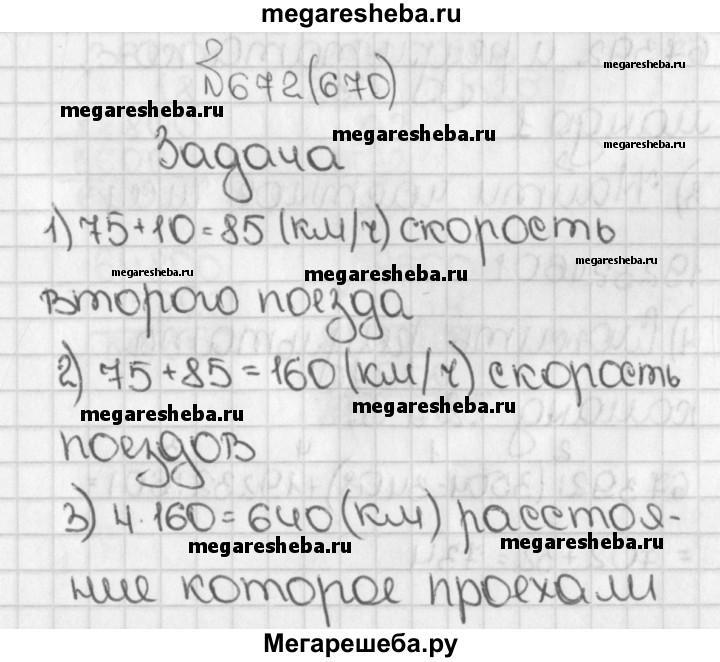 megaresheba.ru
№672(670)
megaresheba.ru
megaresheba.ru
megaresheba.ru
Задача
1) 75+10=85 (км/ч) скорость
megaresheba.ru
megaresheba.ru
megaresheba.ru
второго поезда
2) 75+85=160 (км/ч) скорость
megaresheba.ru
megaresheba.ru
поездов
3) 4·160=640 (км) расстоя-
megaresheba.ru
megaresheba.ru
ние которое проехали
Мегарешеба.ру